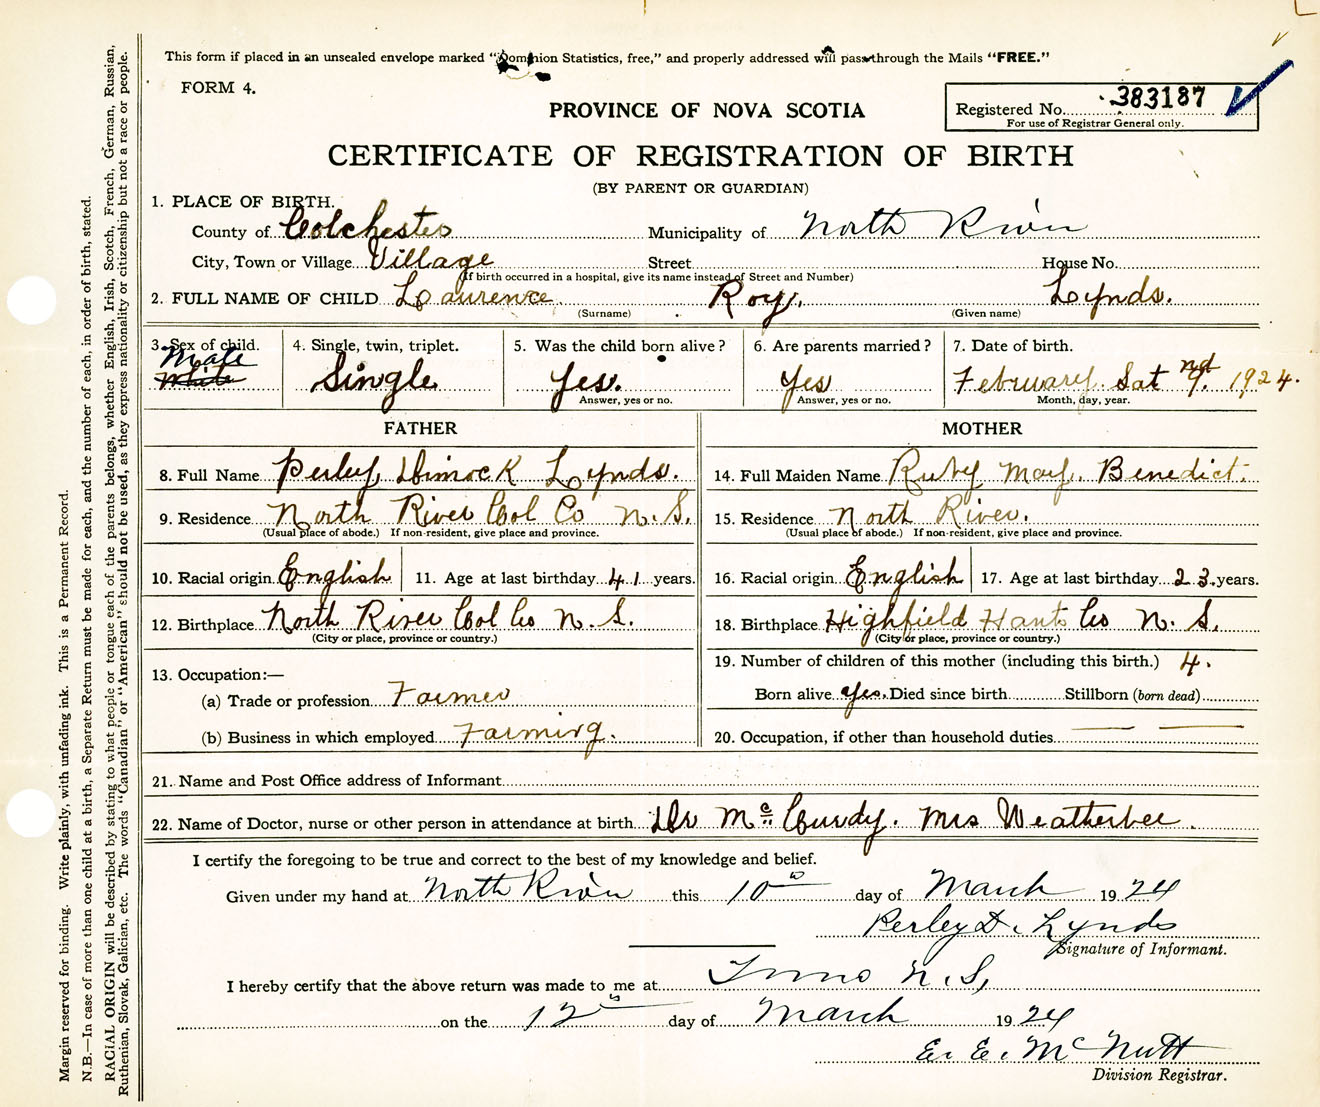 This form if placed in an unsealed envelope marked "Dominion Statistics, free," and properly addressed will pass through the Mails "FREE."
FORM 4.
PROVINCE OF NOVA SCOTIA
Registered No. 383187
For use of Registrar General only.
CERTIFICATE OF REGISTRATION OF BIRTH
(BY PARENT OR GUARDIAN)
1. PLACE OF BIRTH.
County of Colchester Municipality of North River
City, Town or Village Village Street House No.
(If birth occurred in a hospital, give its name instead of Street and Number)
2. FULL NAME OF CHILD Laurence Roy. Lynds.
(Surname) (Given name)
3. Sex of child. 4. Single, twin, triplet. 5. Was the child born alive? 6. Are parents married? 7. Date of birth.
Male
White Single Yes. Yes February Sat 9. nd 1924.
Answer, yes or no. Answer, yes or no. Month, day, year.
FATHER MOTHER
8. Full Name Perley Dimock Lynds. 14. Full Maiden Name Ruby May. Benedict.
9. Residence North River Col Co N.S. 15. Residence North River.
(Usual place of abode.) If non-resident, give place and province. (Usual place of abode.) If non-resident, give place and province.
10. Racial origin English 11. Age at last birthday 41 years. 16. Racial origin English 17. Age at last birthday 23 years.
12. Birthplace North River Col Co N.S. 18. Birthplace Highfield Hants Co N.S.
(City or place, province or country.) (City or place, province or country.)
13. Occupation:— 19. Number of children of this mother (including this birth.) 4.
(a) Trade or profession Farmer Born alive yes. Died since birth Stillborn (born dead)
(b) Business in which employed Farming. 20. Occupation, if other than household duties — —
21. Name and Post Office address of Informant
22. Name of Doctor, nurse or other person in attendance at birth Dr McCurdy. Mrs Weatherbee.
I certify the foregoing to be true and correct to the best of my knowledge and belief.
Given under my hand at North River this 10th day of March 1924
Perley D. Lynds
Signature of Informant.
I hereby certify that the above return was made to me at Truro N.S,
on the 12th day of March 1924
E. E. McNutt
Division Registrar.
Margin reserved for binding. Write plainly, with unfading ink. This is a Permanent Record.
N.B.—In case of more than one child at a birth, a Separate Return must be made for each, and the number of each, in order of birth, stated.
RACIAL ORIGIN will be described by stating to what people or tongue each of the parents belongs, whether English, Irish, Scotch, French, German, Russian,
Ruthenian, Slovak, Galician, etc. The words "Canadian" or "American" should not be used, as they express nationality or citizenship but not a race or people.